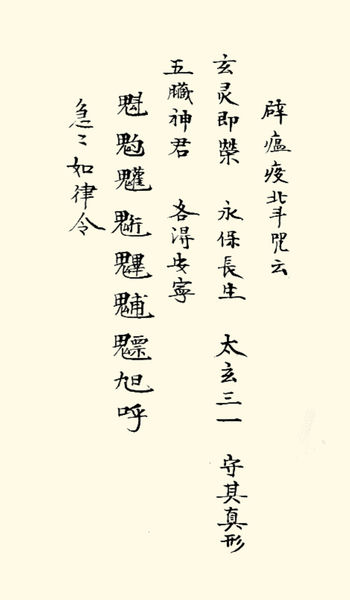 辟瘟疫北斗呪云
玄灵即榮 永保長生 太玄三一 守其真形
五臓神君 各得安寧
魁魓魒旭呼
急〻如律令